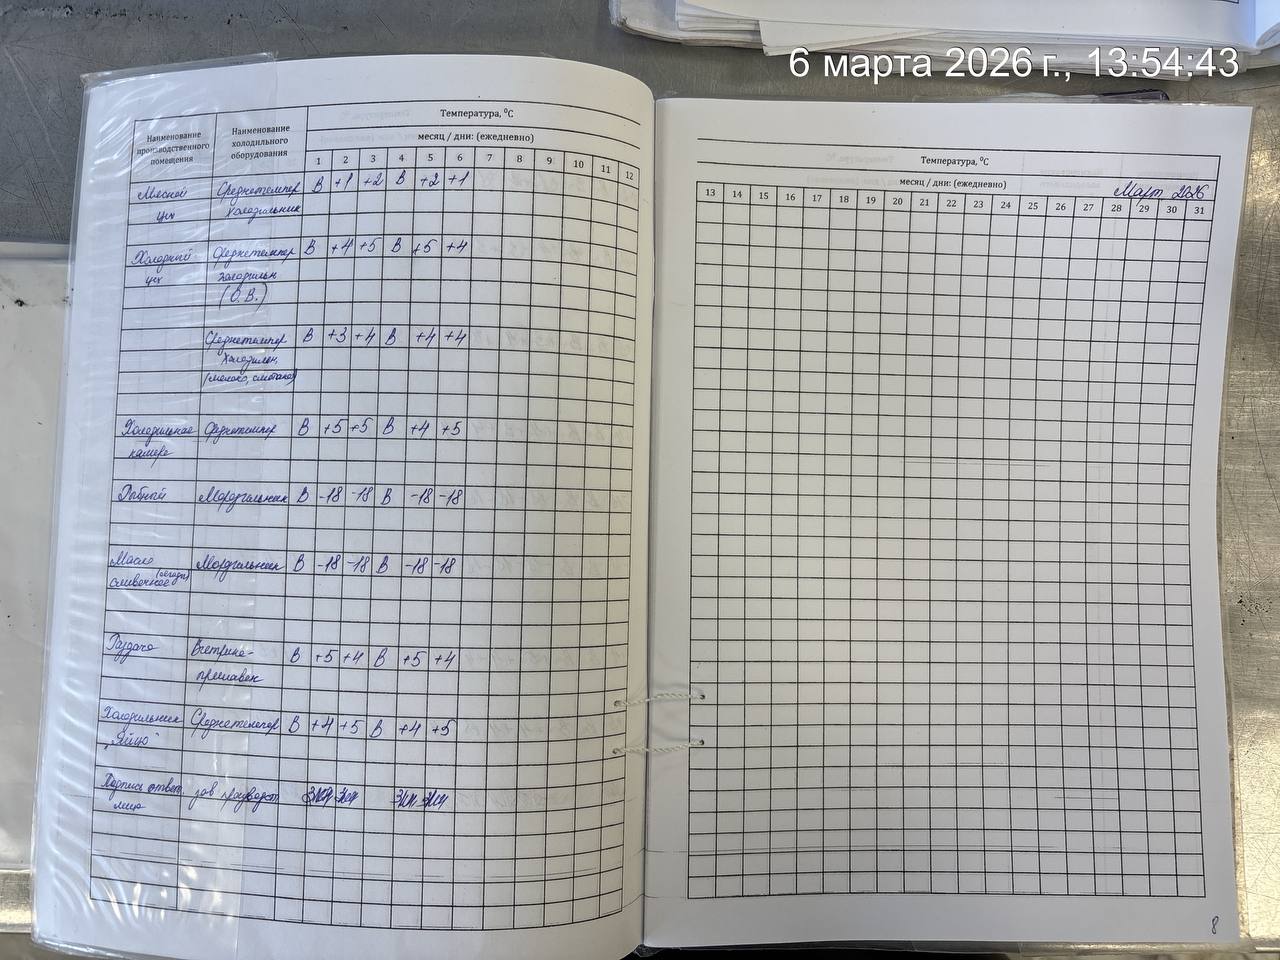 6 марта 2026 г., 13:54:43
Наименование производственного помещения
Наименование холодильного оборудования
Температура, ⁰С
месяц / дни: (ежедневно)
1 2 3 4 5 6 7 8 9 10 11 12
Мясной Среднетемпер В +1 +2 В +2 +1
цех холодильник
Холодный Среднетемпер В +4 +5 В +5 +4
цех холодильн
(О.В.)
Среднетемпер В +3 +4 В +4 +4
холодильн.
(молоко, сметана)
Холодильная Среднетемпер В +5 +5 В +4 +5
камера
Рыбный Морозильник В -18 -18 В -18 -18
Масло Морозильник В -18 -18 В -18 -18
сливочное
Раздача Витрина- В +5 +4 В +5 +4
прилавок
Холодильник Среднетемпер В +4 +5 В +4 +5
"Яйцо"
Подпись ответ. зав производст
лица
Температура, ⁰С
месяц / дни: (ежедневно) Март 2026
13 14 15 16 17 18 19 20 21 22 23 24 25 26 27 28 29 30 31
8